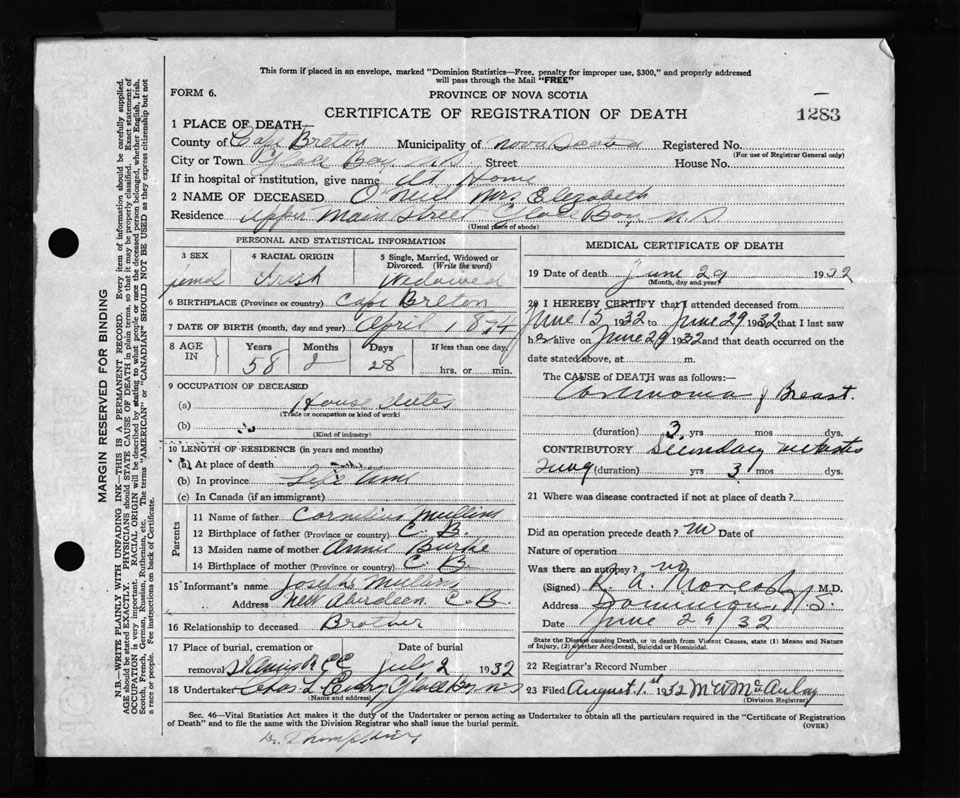 This form if placed in an envelope, marked "Dominion Statistics—Free, penalty for improper use, $300," and properly addressed
will pass through the Mail "FREE"
FORM 6.
PROVINCE OF NOVA SCOTIA
CERTIFICATE OF REGISTRATION OF DEATH
1283
1 PLACE OF DEATH—
County of Cape Breton Municipality of Nova Scotia Registered No.
(For use of Registrar General only)
City or Town Glace Bay N S Street House No.
If in hospital or institution, give name At Home
2 NAME OF DECEASED O'Neill Mrs Elizabeth
Residence Upper Main Street Glace Bay N S
(Usual place of abode)
PERSONAL AND STATISTICAL INFORMATION
3 SEX 4 RACIAL ORIGIN 5 Single, Married, Widowed or Divorced. (Write the word)
Irish Widowed
6 BIRTHPLACE (Province or country) Cape Breton
7 DATE OF BIRTH (month, day and year) April, 1874
8 AGE IN Years Months Days If less than one day,
58 2 28 hrs. or min.
9 OCCUPATION OF DECEASED
(a) House
(Trade or occupation or kind of work)
(b)
(Kind of industry)
10 LENGTH OF RESIDENCE (in years and months)
(a) At place of death
(b) In province Life time
(c) In Canada (if an immigrant)
Parents
11 Name of father Cornelius Mullins
12 Birthplace of father (Province or country) C. B.
13 Maiden name of mother Annie Burke
14 Birthplace of mother (Province or country) C B
15 Informant's name Joseph Mullins
Address New Aberdeen C. B.
16 Relationship to deceased Brother
17 Place of burial, cremation or removal Date of burial
July 2 1932
18 Undertaker Glace Bay N S
(Name and address)
MEDICAL CERTIFICATE OF DEATH
19 Date of death June 29 1932
(Month, day and year)
20 I HEREBY CERTIFY that I attended deceased from
June 15 1932 to June 29 1932 that I last saw
her alive on June 29 1932 and that death occurred on the
date stated above, at m.
The CAUSE of DEATH was as follows:—
Carcinoma of Breast.
(duration) 3 yrs mos dys.
CONTRIBUTORY Secondary
Lung (duration) yrs 3 mos dys.
21 Where was disease contracted if not at place of death?
Did an operation precede death? Date of
Nature of operation
Was there an autopsy? no
(Signed) M.D.
Address Dominion, N S.
Date June 29/32
State the Disease causing Death, or in death from Violent Causes, state (1) Means and Nature
of Injury, (2) whether Accidental, Suicidal or Homicidal.
22 Registrar's Record Number
23 Filed August 1st 1932 M W McAulay
(Division Registrar)
Sec. 46—Vital Statistics Act makes it the duty of the Undertaker or person acting as Undertaker to obtain all the particulars required in the "Certificate of Registration
of Death" and to file the same with the Division Registrar who shall issue the burial permit.
(OVER)
MARGIN RESERVED FOR BINDING
N.B.—WRITE PLAINLY WITH UNFADING INK—THIS IS A PERMANENT RECORD. Every item of information should be carefully supplied.
AGE should be stated EXACTLY. PHYSICIANS should STATE CAUSE OF DEATH in plain terms, so that it may be properly classified. Exact statement of
OCCUPATION is very important. RACIAL ORIGIN will be described by stating to what people or race the deceased person belonged, whether English, Irish,
Scotch, French, German, Russian, Ruthenian, etc. The terms "AMERICAN" or "CANADIAN" SHOULD NOT BE USED as they express citizenship but not
a race or people. Fee instructions on back of Certificate.